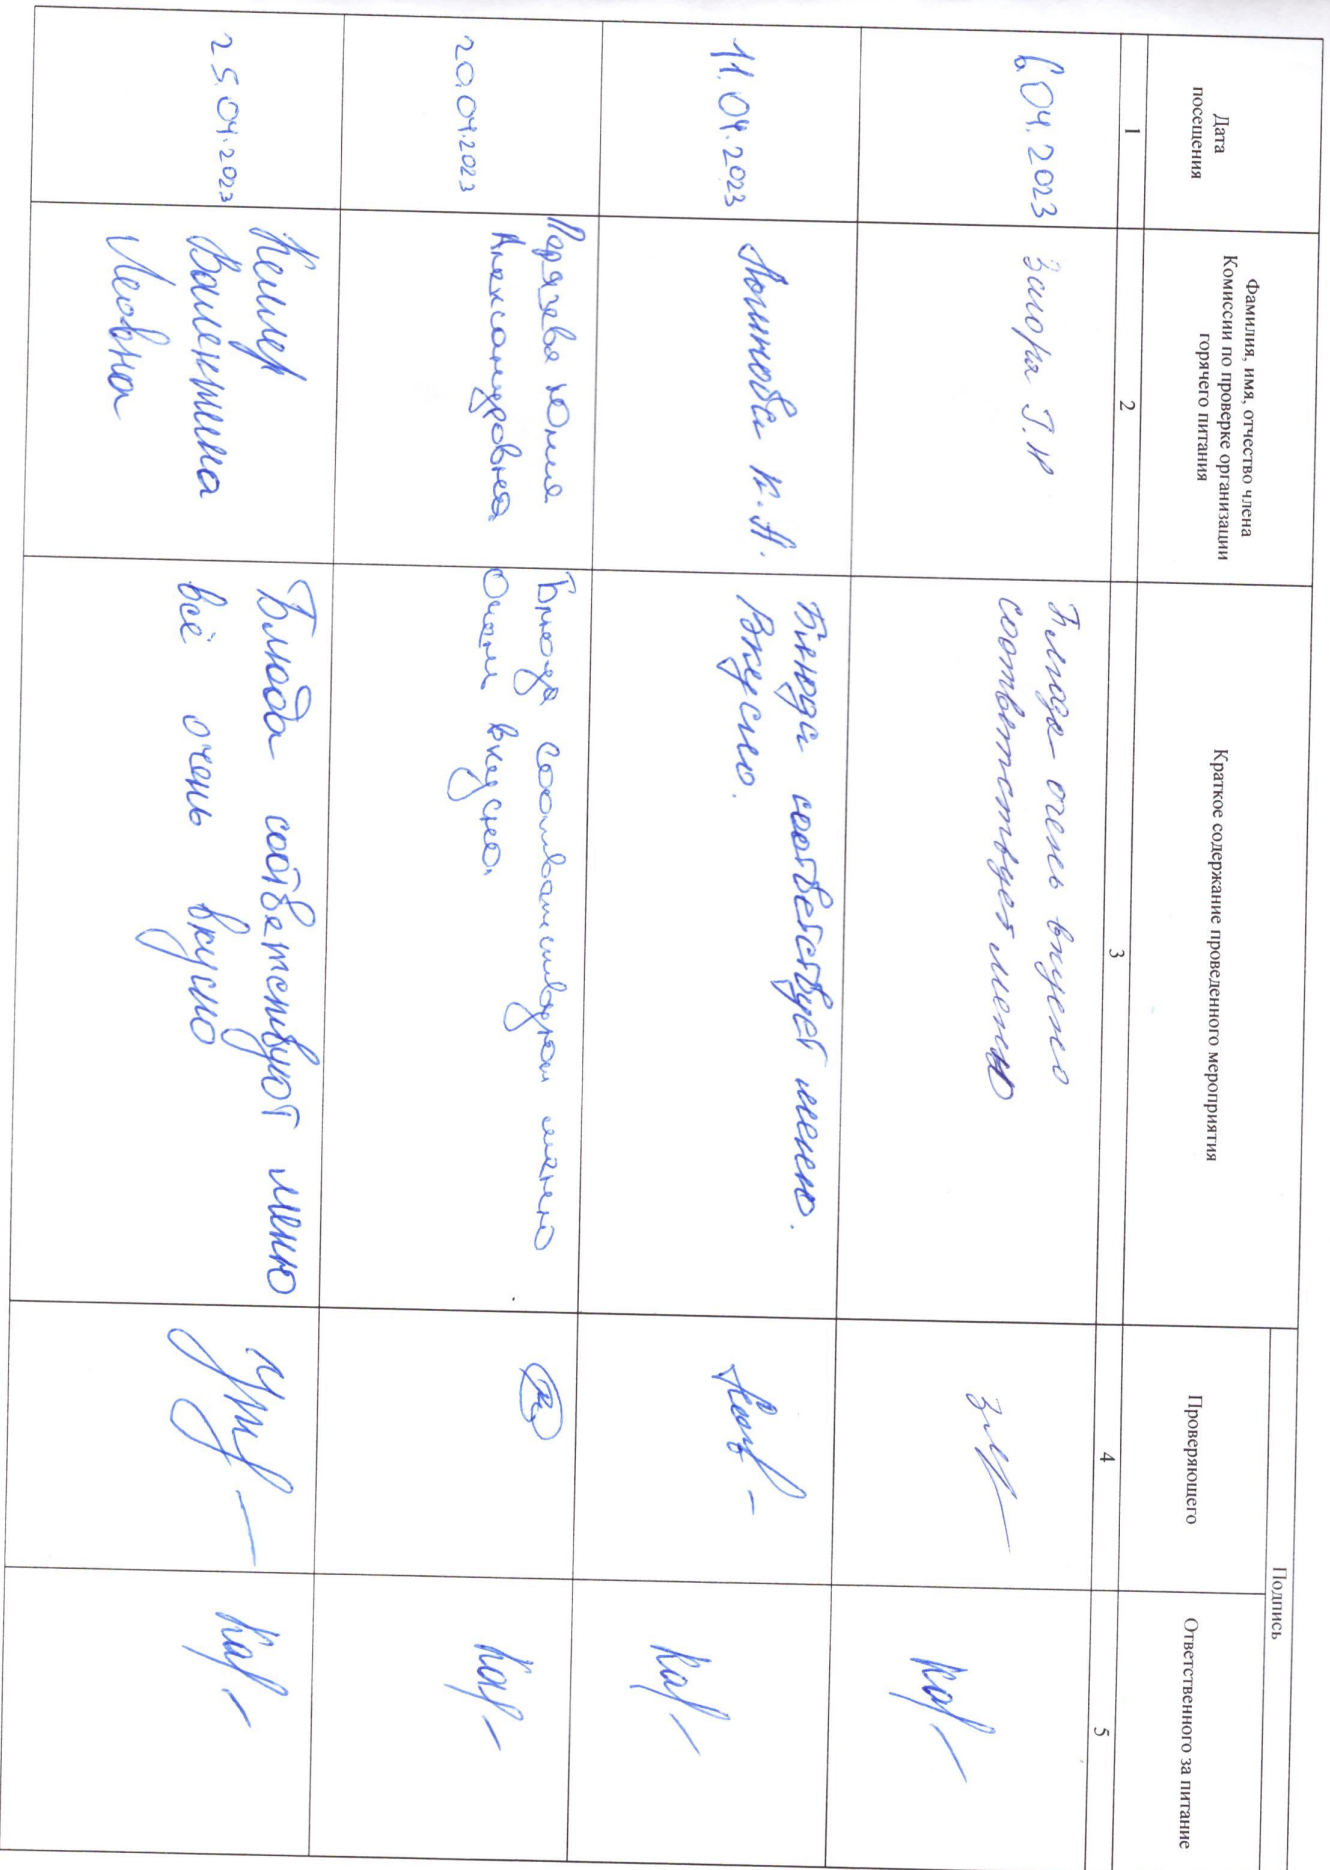 Дата
посещения
Фамилия, имя, отчество члена
Комиссии по проверке организации
горячего питания
Краткое содержание проведенного мероприятия
Подпись
Проверяющего
Ответственного за питание
1
2
3
4
5
6.04.2023
Блюда очень вкусно
соответствует меню
11.04.2023
К.А.
Блюда соотвествует меню.
Вкусно.
20.04.2023
Юлия
Александровна
Блюда меню
Очень вкусно.
25.04.2023
Келлер
Валентина
Леовна
Блюда соответствуют меню
всё очень вкусно